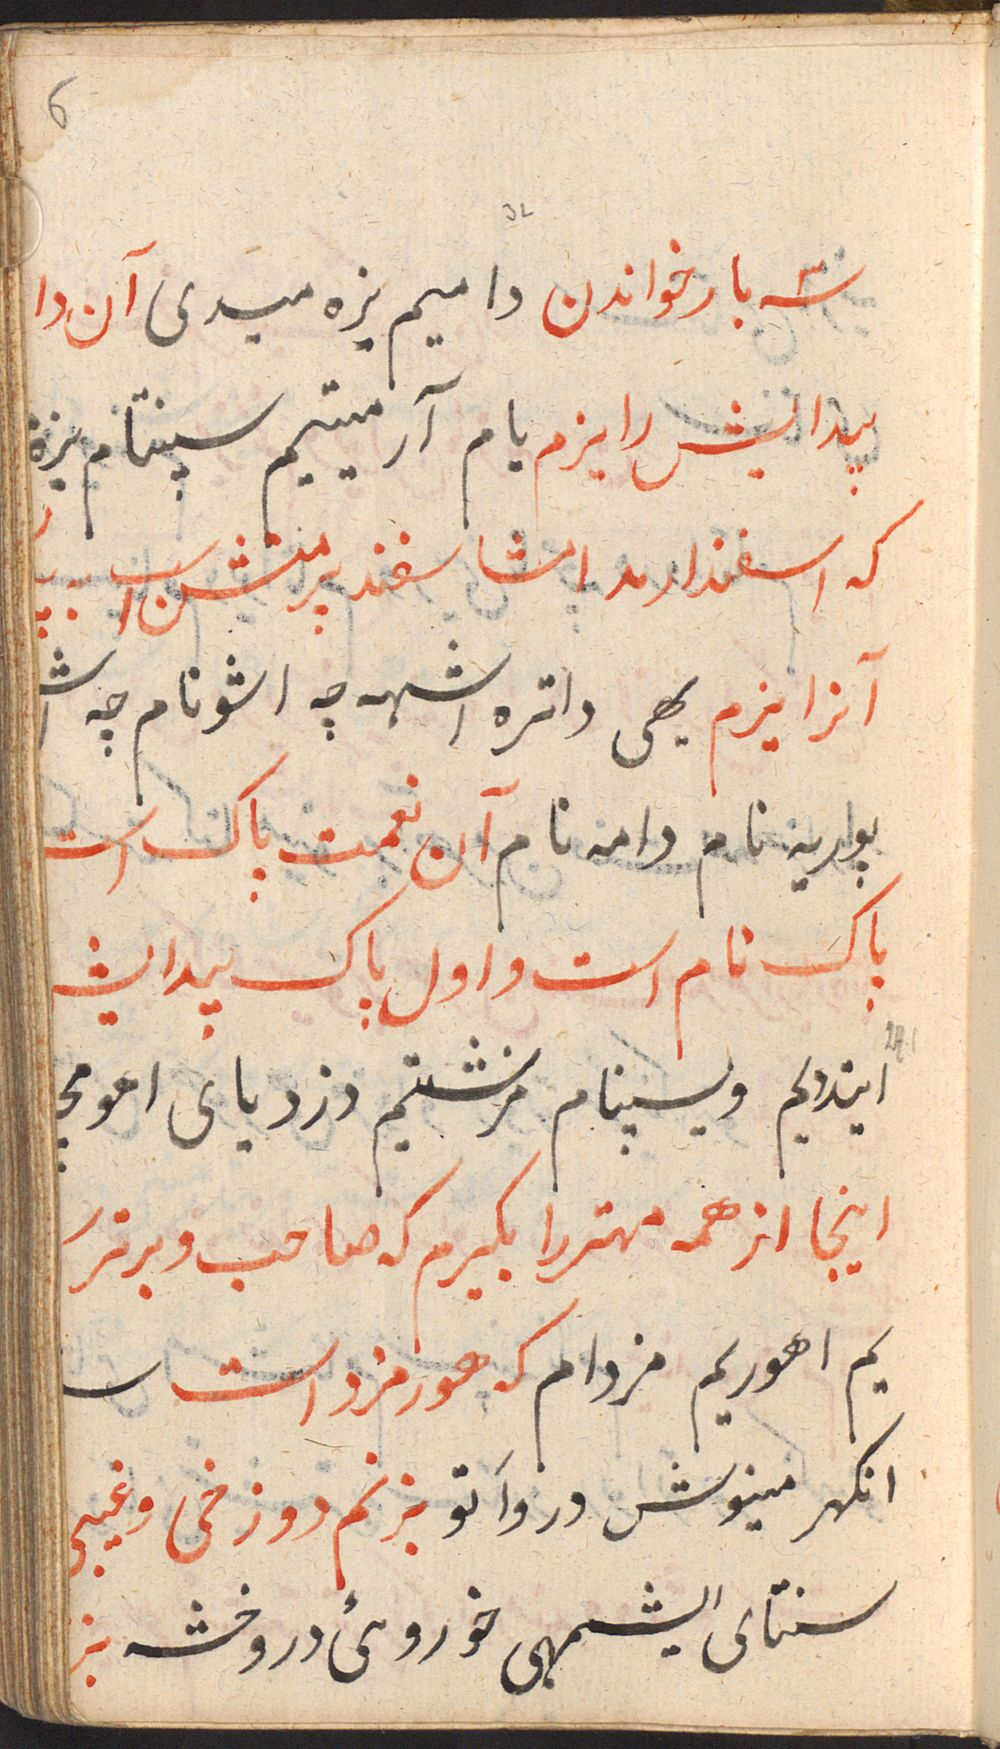 6
32
سه بار خواندن دامیم یزه میدی آن دا
پیدایش را یزم یام آرمیتیم سپنتام یزه
که اسفندارمد امشاسفند پر منشن است
آنرا یزم یهی داتره اشهه چه اشونام چه
پوریه نام دامه نام آن نعمت پاک است
پاک نام است و اول پاک پیدایش
ایندیم ویسپنام مزشتیم دزدیای اهومچ
اینجا از همه مهتر را بگیرم که صاحب و برتر
یم اهوریم مزدام که هورمزد است
انکهر مینوش درواتو بزنم دوزخی و غیبی
سنتای ایشمهی خوروئی دروخشه بز